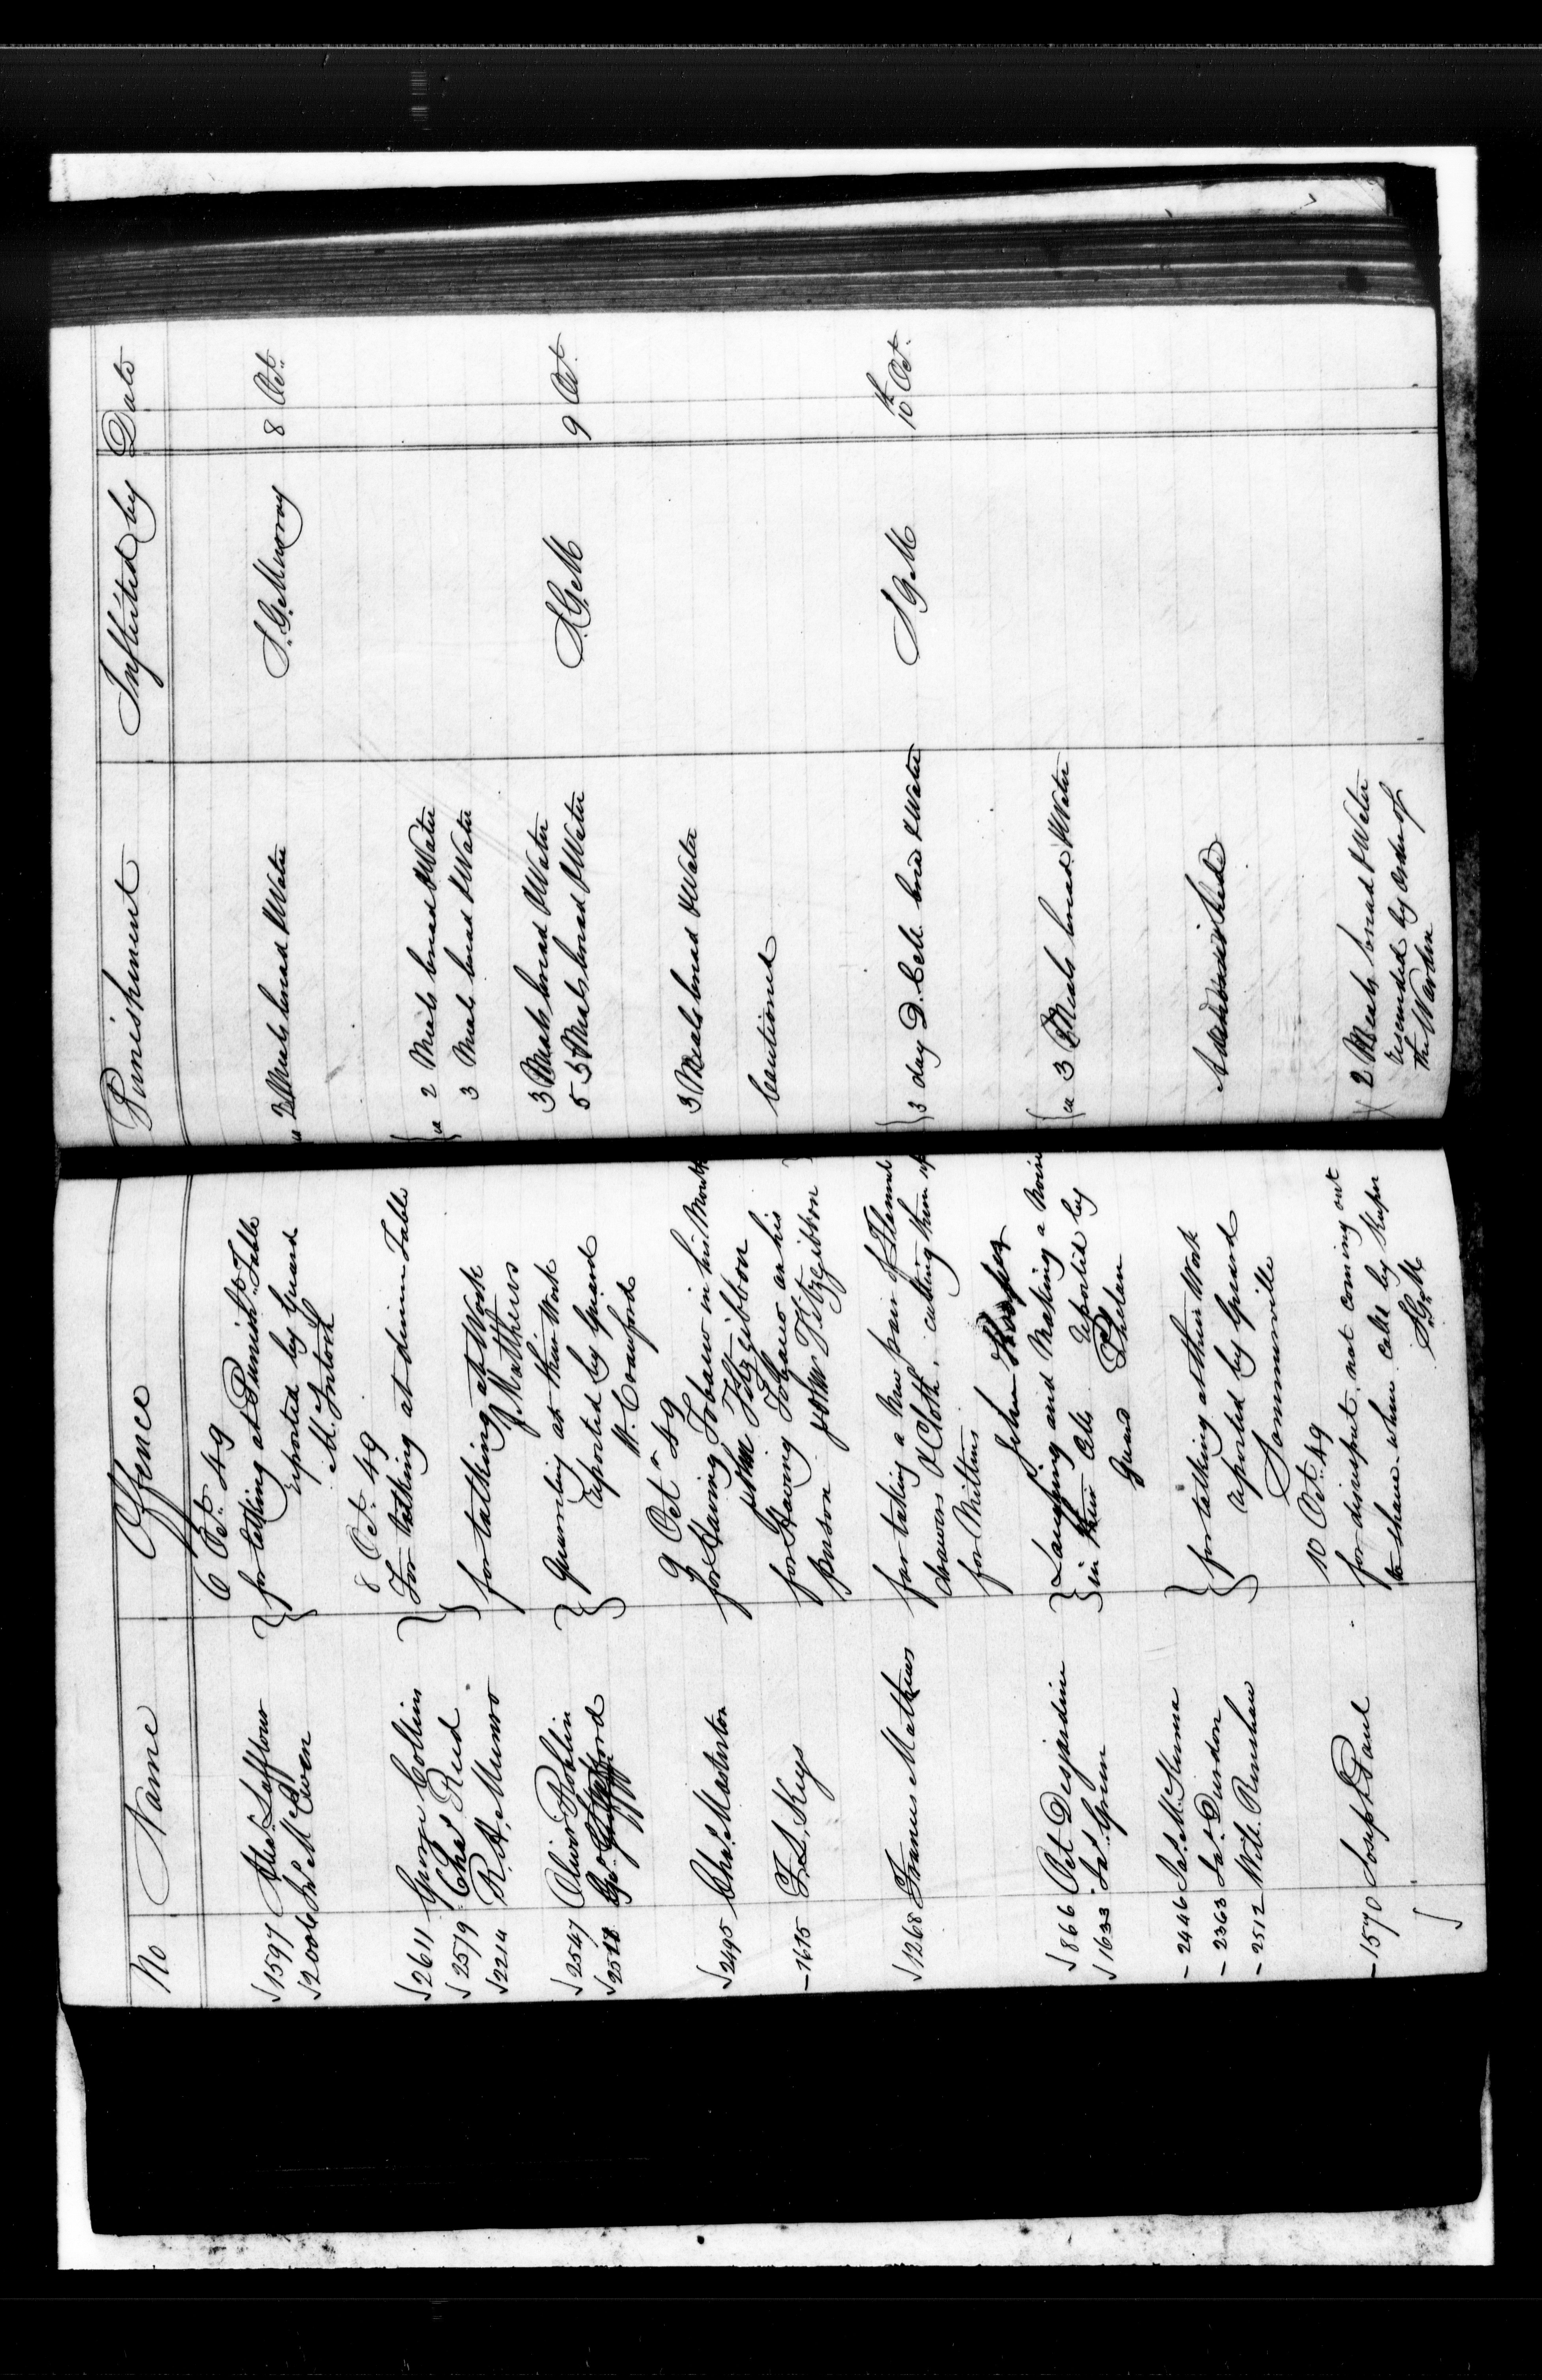 No Name Offence Punishment Inflicted by Date
6 Oct. 49
√1597 Alex. Lafflour } for talking at Punisht. Table ea 2 Meals bread & Water S. G. Murray 8 Oct.
√2006 Jn. McEwen reported by Guard
McIntosh
8 Oct. 49
√2611 George Collins } For talking at dinner Table } ea 2 Meals bread & Water
√2579 Chas. Reid 3 Meals bread & Water
√2214 R. A. Munro for talking at Work
J Matthews
√2547 Oliver Roblin } Quarreling at their Work 3 Meals bread & Water S.G.M 9 Oct.
√2518 Geo. reported by Guard 5 5 Meals bread & Water
W. Crawford
9 Oct. 49
√2495 Chs. Masterton for Having Tobacco in his Mouth 3 Meals bread & Water
John Fitzgibbon
- 1615 F. S. Keys for Having Tobacco on his Cautioned
person John Fitzgibbon
√1268 Francis Mathews for taking a New pair of Flannel } 3 day D. Cell bread & Water S G M 10th Oct.
drawers & Cloth, cutting them up
for Mittens
John
√866 Oct Desjardin } Laughing and Making a Noise { ea 3 Meals bread & Water
√1633 Jas. Green in their Cells reported by
Guard Phelan
- 2446 Jas. McKenna } for talking at their Work Admonished
- 2363 Jas. Dundon reported by Guard
- 2512 Will. Renshaw Sommerville
10 Oct. 49
- 1570 Joseph Paul for disrespect, not coming out 2 Meals bread & Water
to shave when calld by Keeper rescinded by order of
√ S.G.M the Warden